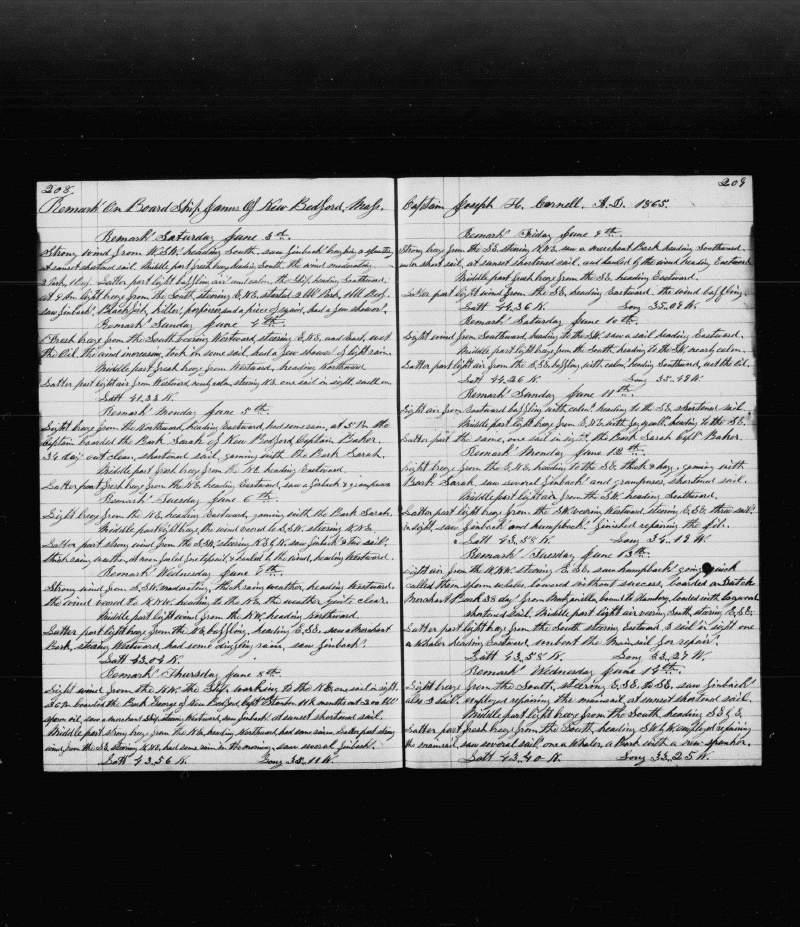 208.
Remark' On Board Ship James Of New Bedford, Mass.
Remark' Saturday June 3d.
Strong wind from W.SW. heading South. saw finback'
at sunset shortened sail. Middle part fresh breeze heading South, the wind moderating
Latter part light baffling air' and calm. the Ship heading Southward.
at 4 Am light breeze from the South, steering E.NE.
saw finback', Blackfish, killer', porpoises, and a piece of squid, had a few shower'.
Remark' Sunday June 4th.
Fresh breeze from the South steering Westward steering E.NE. and East,
the Oil. the wind increasing, took in some sail, had a few shower' of light rain.
Middle part fresh breeze from Westward, heading Northward
Latter part light air' from Westward nearly calm, steering NE. one sail in sight
Latt 41..33 N.
Remark' Monday June 5th.
Light breeze from the Northward heading Eastward had some rain, at 5 Pm the
Captain boarded the Bark Sarah of New Bedford Captain Baker.
out clean, shortened sail, gaming with the Bark Sarah.
Middle part fresh breeze from the NE heading Eastward.
Latter part fresh breeze from the NE. heading Eastward, saw a finback & grampuses
Remark' Tuesday June 6th.
Light breeze from the NE. heading Eastward, gaming with the Bark Sarah.
Middle part light breeze the wind veered to E.SE. steering N.NE.
Latter part strong wind from the S.SW. steering saw finback' & two sail'.
thick rainy weather, at noon & rounded to the wind, heading Westward.
Remark' Wednesday June 7th.
Strong wind from S.SW. moderating, thick rainy weather, heading Westward.
the wind veered to W.NW. heading to the NE. the weather quite clear.
Middle part light wind from the NW. heading Northward.
Latter part light breeze from the NE. baffling, heading E.SE. saw a Merchant
Bark, steering Westward, had some drizzling rain, saw finback'.
Latt 43..04 N.
Remark' Thursday June 8th.
Light wind from the NW. the Ship working to the NE. one sail in sight.
boarded the Bark George of New Bedford, Capt 11 months out 200 bbl'
sperm oil, saw a merchant Ship, steering Westward, saw finback' at sunset shortened sail.
Middle part strong breeze from the NE. heading Northward had some rain. Latter part strong
wind from the SE. steering N.NE. had some rain in the morning. saw several finback'.
Latt 43..56 N. Long 35..11 W.
209
Captain Joseph H. Cornell A.D. 1865.
Remark' Friday June 9th.
Strong breeze from the SE. steering N.NE. saw a merchant Bark heading Southward.
under short sail, at sunset shortened sail, and hauled by the wind heading Eastward
Middle part fresh breeze from the SE. heading Eastward.
Latter part light wind from the SE. heading Eastward. the wind baffling.
Latt 44..36 N. Long 35..09 W.
Remark' Saturday June 10th.
Light wind from Southward, heading to the SW. saw a sail heading Eastward.
Middle part light breeze from the South, heading to the SW. nearly calm.
Latter part light air' from the S.SE. baffling, with calm, heading Southward, wet the Oil.
Latt 44..26 N. Long 35..49 W.
Remark' Sunday June 11th.
Light air' from Eastward baffling with calm' heading to the SE. shortened sail.
Middle part light breeze from E.NE. with heading to the SE.
Latter part the same, one sail in sight, the Bark Sarah Capt Baker.
Remark' Monday June 12th.
Light breeze from the E.NE. heading to the SE. thick & hazy, gaming with
Bark Sarah, saw several finback' and grampuses, shortened sail.
Middle part light air from the SW heading Southward.
Latter part light breeze from the SW. veering Westward steering E.SE. three sail'
in sight, saw finback' and humpback'. finished repairing the jib.
Latt 43..58 N. Long 34..18 W.
Remark' Tuesday June 13th.
Light air from the W.NW. steering E.SE. saw humpback' going quick
called them sperm whales, lowered without success, boarded a Dutch
Merchant Bark 38 day' from bound to Hamburg, loaded with logwood
shortened sail. Middle part light air veering South, steering E.SE.
Latter part light breeze from the South steering Eastward 3 sail in sight one
a Whaler heading Eastward. unbent the Main sail for repair'.
Latt 43..58 N. Long 33..27 W.
Remark' Wednesday June 14th.
Light breeze from the South, steering E.SE. to SE. saw finback'
also 2 sail'. employed repairing the mainsail at sunset shortened sail.
Middle part light breeze from the South heading
Latter part fresh breeze from the South, heading employed repairing
the mainsail, saw several sail, one a Whaler, a Bark with a new spanker.
Latt 43..40 N. Long 33..25 W.